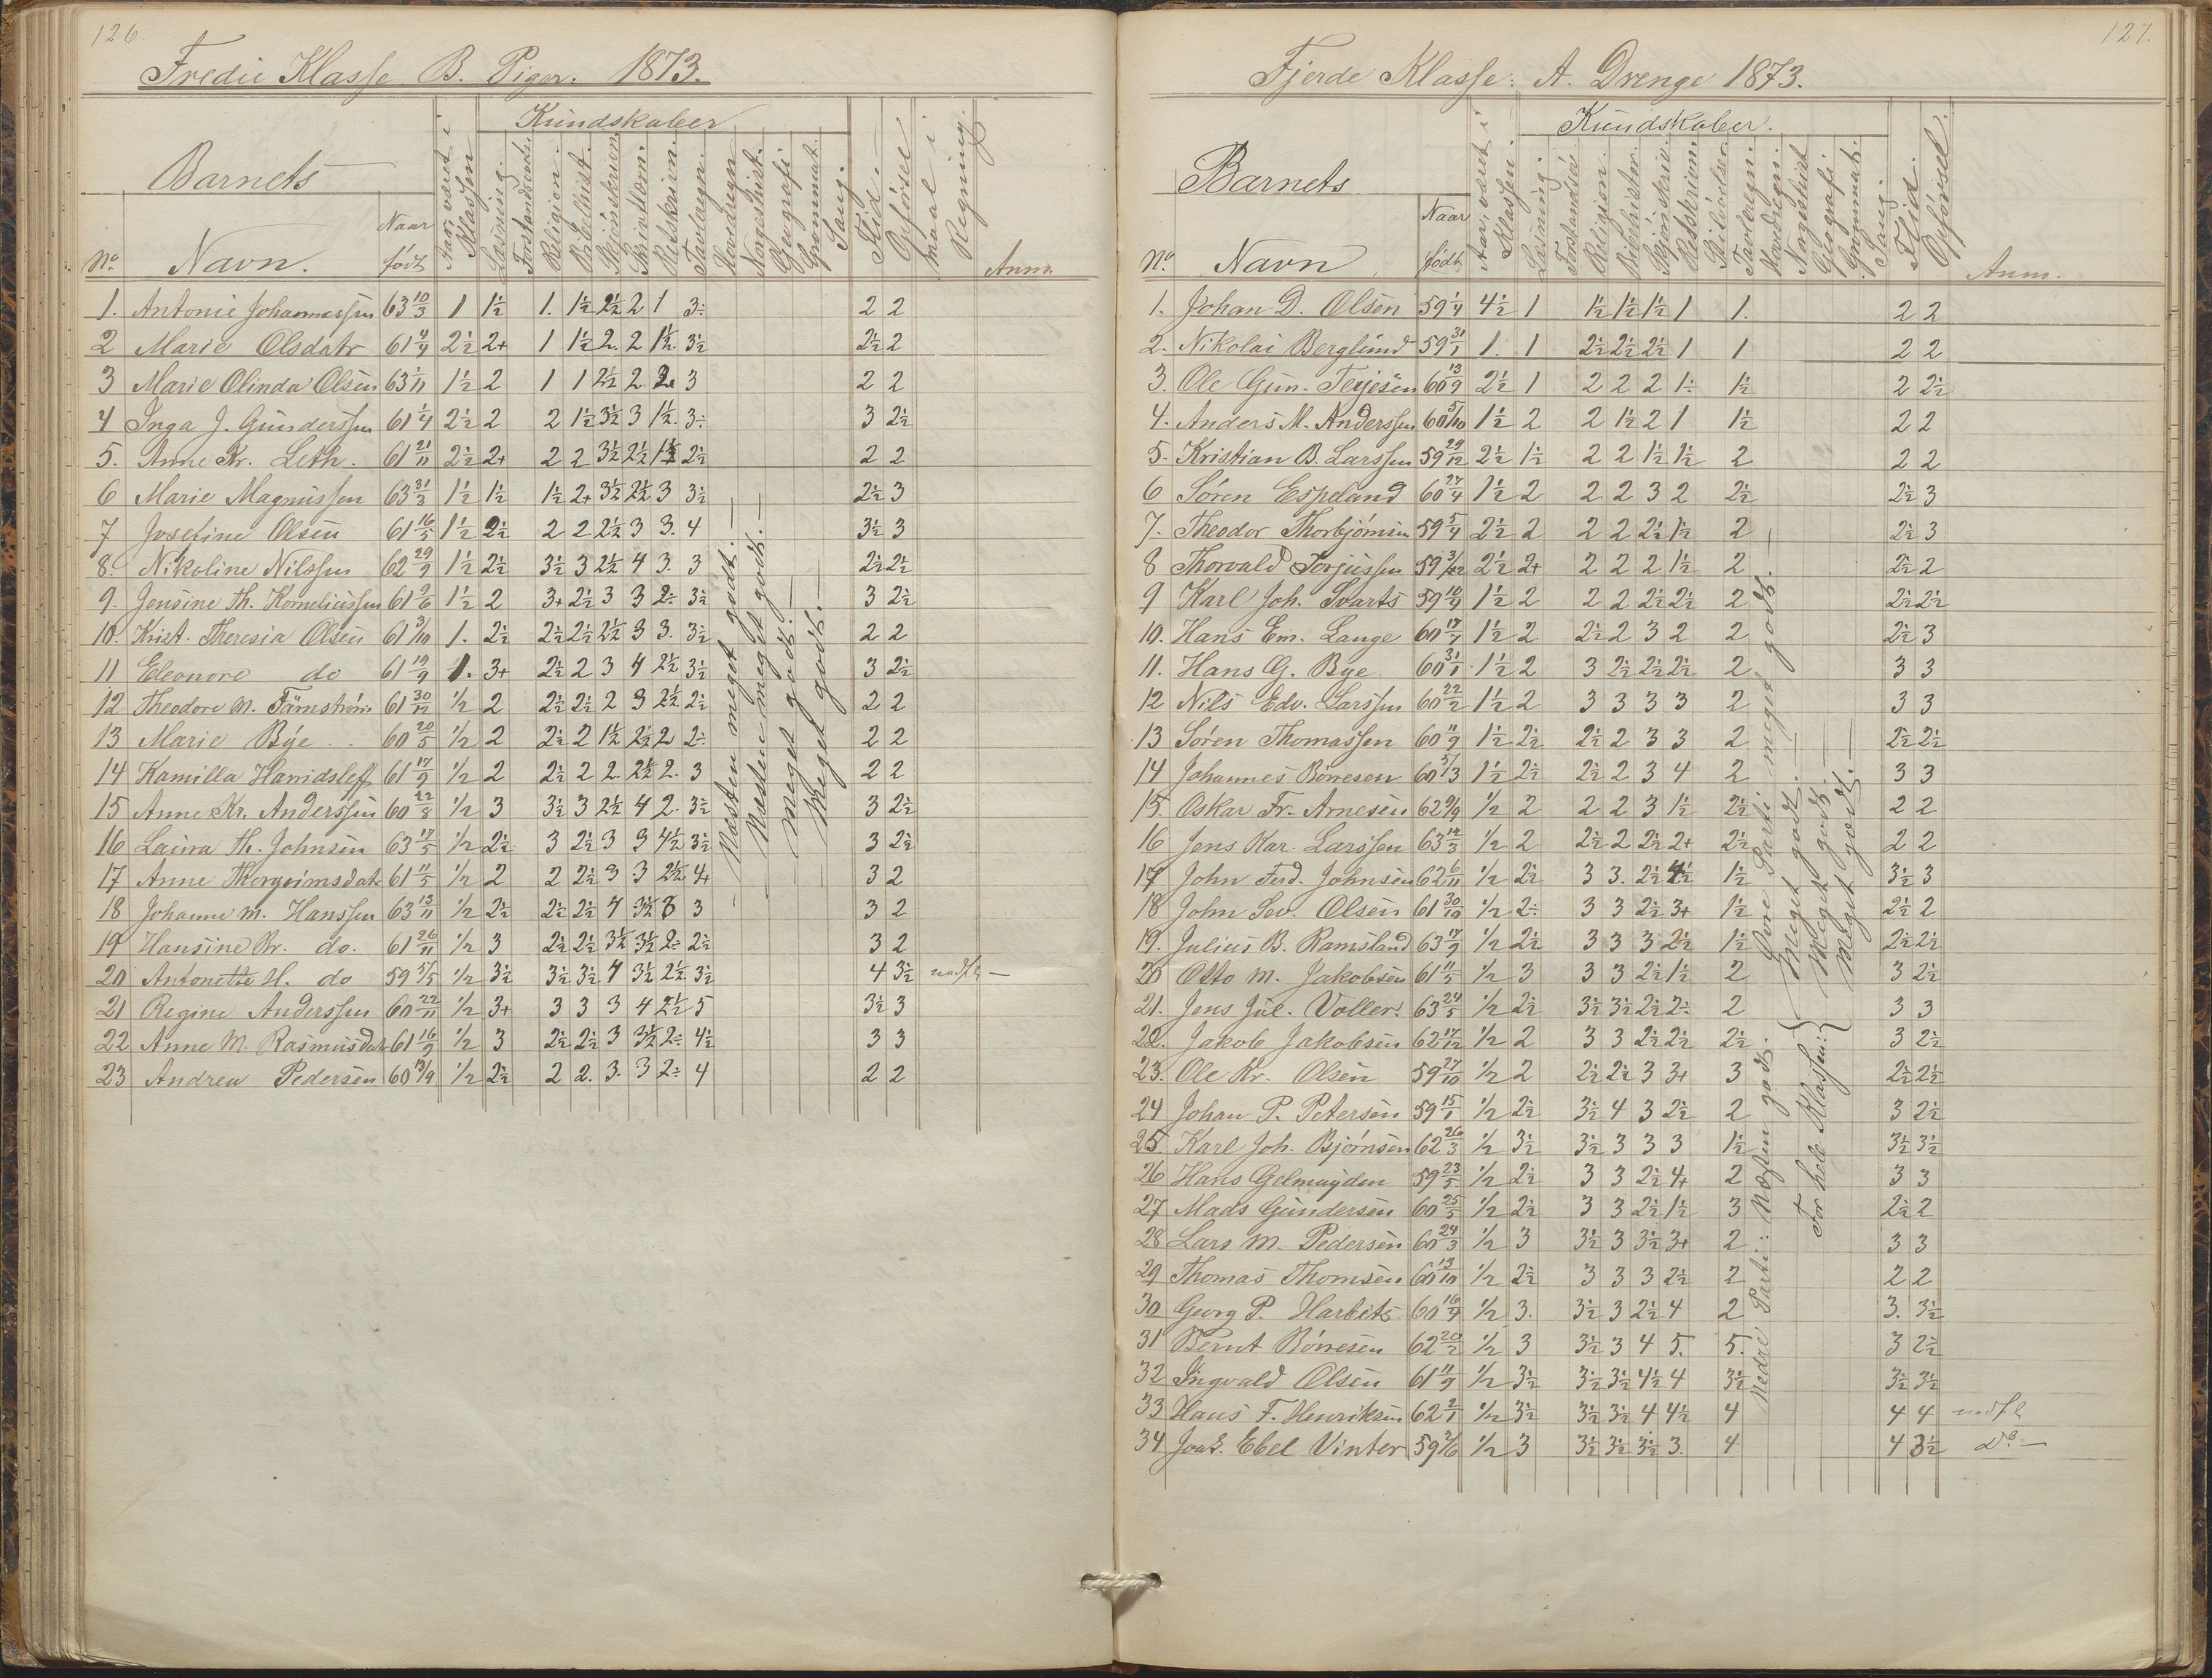 126.
Tredie Klasse B. Piger. 1873.
Kundskaber
Barnets
No. Navn. Naar født Aar været i Klassen Læsning. Religion. Bibelhist. Skjønskrivn. Retskrivn. Tavleregn. Hovedregn Norgeshist. Geografi Grammat. Sang. Flid. Opførsel Maal i Regning. Anm.
1. Antonie Johannessen 63 10/3 1 1½ 1. 1½ 2½ 2 1 3÷ 2 2
2 Marie Olsdatr 61 4/4 2½ 2+ 1 1½ 2. 2 1½ 3½ 2½ 2
3 Marie Olinda Olsen 63 1/11 1½ 2 1 1 2½ 2 2 3 2 2
4 Inga J. Gunderssen 61 1/4 2½ 2 2 1½ 3½ 3 1½ 3÷ 3 2½
5. Anne Kr. Leth. 61 21/11 2½ 2+ 2 2 3½ 2½ 1½ 2½ 2 2
6 Marie Magnussen 63 31/3 1½ 1½ 1½ 2+ 3½ 2½ 3 3½ 2½ 3
7 Josefine Olsen 61 16/5 1½ 2½ 2 2 2½ 3 3. 4 3½ 3
8. Nikoline Nilssen 62 29/9 1½ 2½ 3½ 3 2½ 4 3. 3 2½ 2½
9. Jensine Th. Korneliussen 61 9/6 1½ 2 3+ 2½ 3 3 2÷ 3½ 3 2½
10. Krist. Theresia Olsen 61 3/10 1. 2½ 2½ 2½ 2½ 3 3. 3½ 2 2
11 Eleonore do 61 19/9 1. 3+ 2½ 2 3 4 2½ 3½ 3 2½
12 Theodore M. 61 30/12 ½ 2 2½ 2½ 2 3 2½ 2½ 2 2
13 Marie Bye 60 20/5 ½ 2 2½ 2 1½ 2½ 2 2÷ 2 2
14 Kamilla 61 17/9 ½ 2 2½ 2 2. 2½ 2. 3 2 2
15 Anne Kr. Anderssen 60 22/8 ½ 3 3½ 3 2½ 4 2. 3½ 3 2½
16 Laura Th. Johnsen 63 17/5 ½ 2½ 3 2½ 3 3 4½ 3½ 3 2½
17 Anne Thorgrimsdatr 61 11/5 ½ 2 2 2½ 3 3 2½ 4+ 3 2
18 Johanne M. Hanssen 63 13/11 ½ 2½ 2½ 2½ 4 3½ 3 3 3 2
19 Hansine Kr. do. 61 26/11 ½ 3 2½ 2½ 3½ 3½ 2÷ 2½ 3 2
20 Antonette H. do 59 5/5 ½ 3½ 3½ 3½ 4 3½ 2½ 3½ 4 3½
21 Regine Anderssen 60 22/11 ½ 3+ 3 3 3 4 2½ 5 3½ 3
22 Anne M. Rasmusdatr 61 16/9 ½ 3 2½ 2½ 3 3½ 2÷ 4½ 3 3
23 Andrea Pedersen 60 13/9 ½ 2½ 2 2. 3. 3 2÷ 4 2 2
Næsten meget godt. —
Næsten meget godt. —
Meget godt. —
Meget godt. —
127.
Fjerde Klasse: A. Drenge 1873.
Kundskaber.
Barnets
No. Navn Naar født Aar været i Klassen. Læsning. Religion. Bibelhistor. Skjønskriv. Retskrivn. Stiløvelser. Tavleregn. Hovedregn. Norgeshist. Geografi. Grammat. Sang. Flid. Opførsel. Anm.
1. Johan D. Olsen 59 1/4 4½ 1 1½ 1½ 1½ 1 1. 2 2
2. Nikolai Berglund 59 31/1 1. 1 2½ 2½ 2½ 1 1 2 2
3. Ole Gun. Terjesen 60 13/9 2½ 1 2 2 2 1÷ 1½ 2 2½
4. Anders M. Anderssen 60 5/10 1½ 2 2 1½ 2 1 1½ 2 2
5. Kristian B. Larssen 59 29/12 2½ 1½ 2 2 1½ 1½ 2 2 2
6 Søren Espeland 60 27/4 1½ 2 2 2 3 2 2½ 2½ 3
7. Theodor Thorbjørnsen 59 5/4 2½ 2 2 2 2½ 1½ 2 2½ 3
8 Thorvald Torjussen 59 3/12 2½ 2+ 2 2 2 1½ 2 2½ 2
9 Karl Joh. Svarts 59 10/4 1½ 2 2 2 2½ 2½ 2 2½ 2½
10. Hans Em. Lange 60 17/7 1½ 2 2½ 2 3 2 2 2½ 3
11. Hans G. Bye 60 31/1 1½ 2 3 2½ 2½ 2½ 2 3 3
12 Nils Edv. Larssen 60 22/2 1½ 2 3 3 3 3 2 3 3
13 Søren Thomassen 60 11/9 1½ 2½ 2½ 2 3 3 2 2½ 2½
14 Johannes Børresen 60 3/3 1½ 2½ 2½ 2 3 4 2 3 3
15. Oskar Fr. Arnesen 62 9/9 ½ 2 2 2 3 1½ 2½ 2 2
16 Jens Kar. Larssen 63 12/3 ½ 2 2½ 2 2½ 2+ 2½ 2 2
17 John Ferd. Johnsen 62 6/11 ½ 2½ 3 3. 2½ 4½ 1½ 3½ 3
18 John Sev. Olsen 61 30/10 ½ 2÷ 3 3 2½ 3+ 1½ 2½ 2
19. Julius B. Ramsland 63 17/9 ½ 2½ 3 3 3 2½ 1½ 2½ 2½
20 Otto M. Jakobsen 61 11/5 ½ 3 3 3 2½ 1½ 2 3 2½
21. Jens Jul. Voller. 63 24/5 ½ 2½ 3½ 3½ 2½ 2÷ 2 3 3
22. Jakob Jakobsen 62 17/12 ½ 2 3 3 2½ 2½ 2½ 3 2½
23. Ole Kr. Olsen 59 27/10 ½ 2 2½ 2½ 3 3+ 3 2½ 2½
24 Johan P. Petersen 59 15/1 ½ 2½ 3½ 4 3 2½ 2 3 2½
25 Karl Joh. Bjørnsen 62 26/3 ½ 3½ 3½ 3 3 3 1½ 3½ 3½
26 Hans Gelmuyden 59 23/5 ½ 2½ 3 3 2½ 4+ 2 3 3
27 Mads Gundersen 60 25/5 ½ 2½ 3 3 2½ 1½ 3 2½ 2
28 Lars M. Pedersen 60 24/3 ½ 3 3½ 3 3½ 3+ 2 3 3
29 Thomas Thomsen 60 13/10 ½ 2½ 3 3 3 2½ 2 2 2
30 Georg P. Harbitz 60 16/9 ½ 3. 3½ 3 2½ 4 2 3. 3½
31 Bernt Børresen 62 20/2 ½ 3 3½ 3 4 5. 5. 3 2½
32 Ingvald Olsen 61 11/9 ½ 3½ 3½ 3½ 4½ 4 3½ 3½ 3½
33 Hans F. Henriksen 62 2/1 ½ 3½ 3½ 3½ 4 4½ 4 4 4
34 Joas. Ebel Vinter 59 2/6 ½ 3 3½ 3½ 3½ 3. 4 4 3½ do —
Nedre Parti: Næsten godt. Øvre Parti meget godt. —
For hele Klassen: { Meget godt. —
Meget godt. —
Meget godt. —